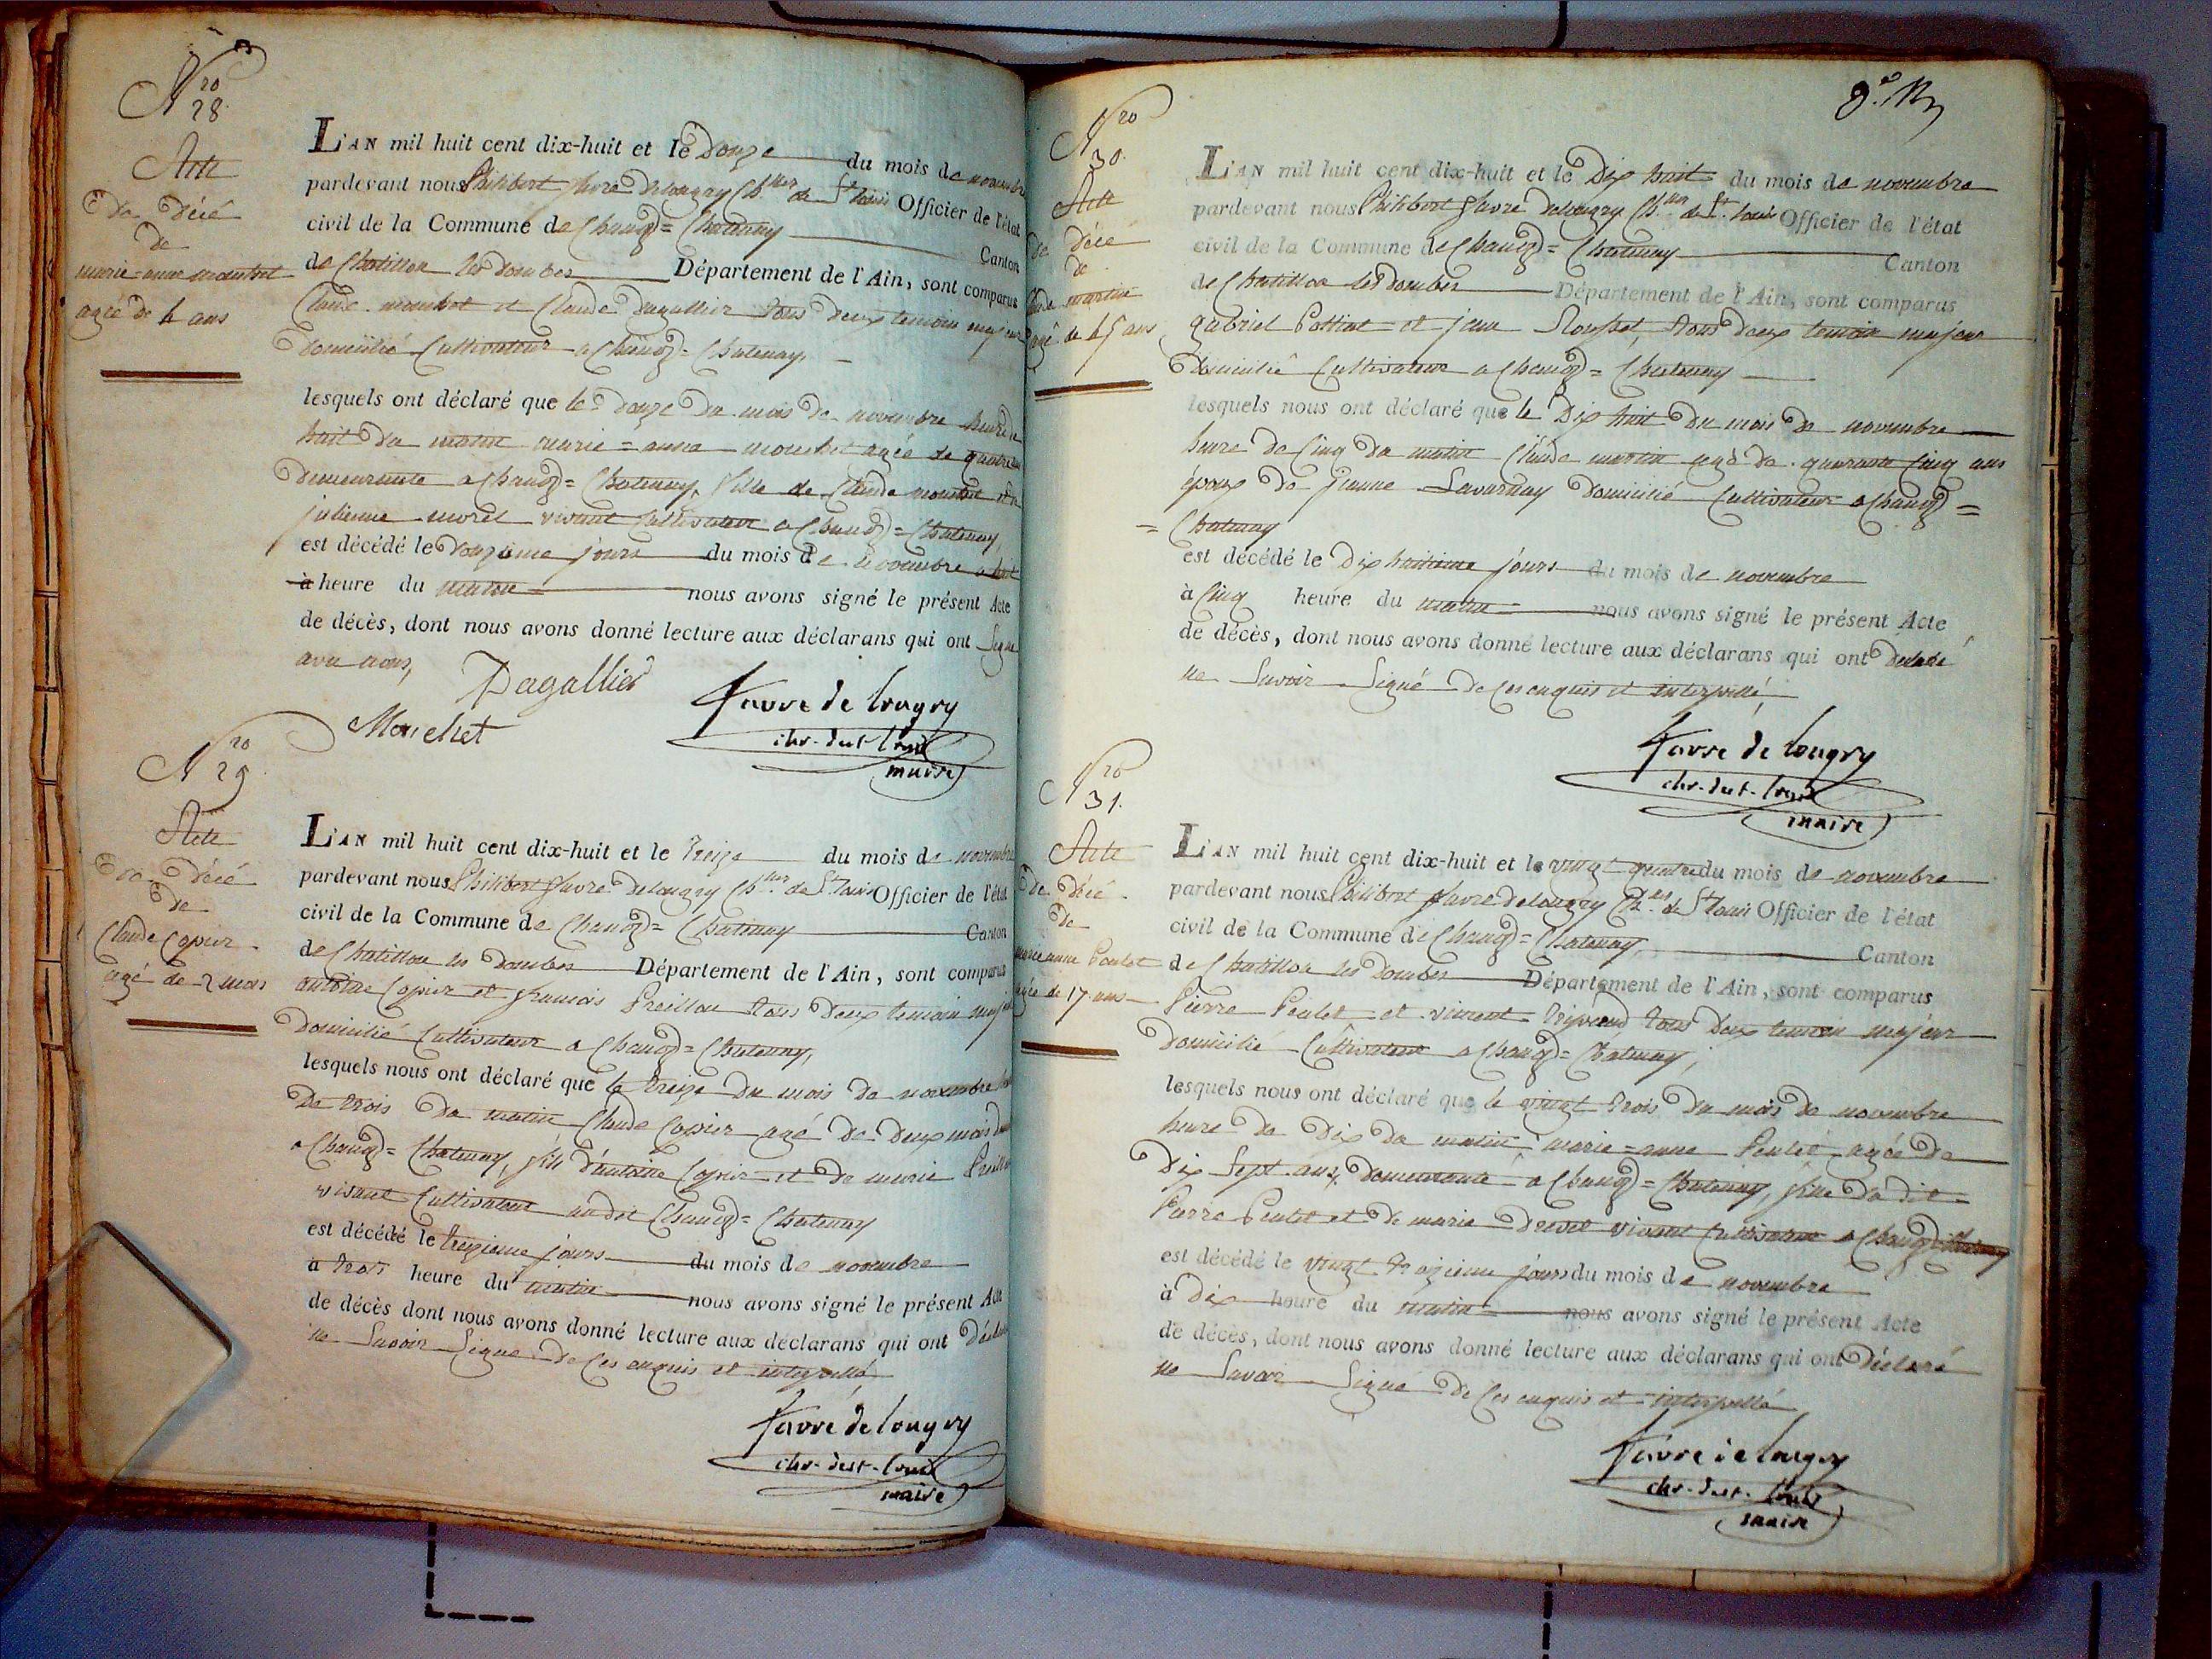 N.ro 28.
Acte
de décé
de
marie=anne mouchet
agée de 4 ans
L'AN mil huit cent dix-huit et le douze du mois de novembre
pardevant nous Philibert favre delongry Ch.lier de St louis Officier de l'état
civil de la Commune de Chanoz=Chatenay Canton
de Chatillon les dombes Département de l'Ain, sont comparus
Claude mouchet et Claude dagallier tous deux temoin majeur
domicilié Cultivateur a Chanoz=Chatenay,
lesquels ont déclaré que le douze du mois de novembre heure de
huit du matin marie=anne mouchet agée de quatre ans
demeurante a Chanoz=Chatenay, fille de Claude mouchet et de
julienne morel vivant Cultivateur a Chanoz=Chatenay,
est décédé le douzieme jours du mois de novembre a huit
à heure du matin nous avons signé le présent Acte
de décès, dont nous avons donné lecture aux déclarans qui ont signé
avec nous,
Dagallier
Mouchet
favre de longry
chr. de st. louis
maire
N.ro 29
Acte
de décé
de
Claude Copier
agé de 2 mois
L'AN mil huit cent dix-huit et le treize du mois de novembre
pardevant nous Philibert favre delongry Ch.lier de St louis Officier de l'état
civil de la Commune de Chanoz=Chatenay Canton
de Chatillon les dombes Département de l'Ain, sont comparus
antoine Copier et francois Preillon tous deux temoin majeur
domicilié Cultivateur a Chanoz=Chatenay,
lesquels nous ont déclaré que le treize du mois de novembre heure
de trois du matin Claude Copier agé de deux mois
a Chanoz=Chatenay, fils d'antoine Copier et de marie Preillon
vivant Cultivateur audit Chanoz=Chatenay
est décédé le treizieme jours du mois de novembre
à trois heure du matin nous avons signé le présent Acte
de décès dont nous avons donné lecture aux déclarans qui ont déclaré
ne savoir signé de ces enquis et interpellé
favre de longry
chr. de st. louis
maire
N.ro 30.
Acte
de décé
de
Claude martin
agé de 45 ans
L'AN mil huit cent dix-huit et le dix huit du mois de novembre
pardevant nous Philibert favre delongry Ch.lier de St. louis Officier de l'état
civil de la Commune de Chanoz=Chatenay Canton
de Chatillon les dombes Département de l'Ain, sont comparus
gabriel Pottint et jean Rousset, tous deux temoin majeur
domicilié Cultivateur a Chanoz=Chatenay
lesquels nous ont déclaré que le dix huit du mois de novembre
heure de Cinq du matin Claude martin agé de quarante Cinq ans
époux de jeanne Lavarnay domicilié Cultivateur a Chanoz=
=Chatenay
est décédé le dix huitieme jours du mois de novembre
à Cinq heure du matin nous avons signé le présent Acte
de décès, dont nous avons donné lecture aux déclarans qui ont déclaré
ne savoir signé de ces enquis et interpellé,
favre de longry
chr. de st. louis
maire
N.ro 31.
Acte
de décé
de
marie anne Poulet
agée de 17 ans
L'AN mil huit cent dix-huit et le vingt quatre du mois de novembre
pardevant nous Philibert favre delongry Ch.lier de St louis Officier de l'état
civil de la Commune de Chanoz=Chatenay, Canton
de Chatillon les dombes Département de l'Ain, sont comparus
Pierre Poulet et vincent tous deux temoin majeur
domicilié Cultivateur a Chanoz=Chatenay,
lesquels nous ont déclaré que le vingt trois du mois de novembre
heure de dix du matin marie=anne Poulet agée de
dix sept ans, demeurante a Chanoz=Chatenay, fille du dit
Pierre Poulet et de marie drevet vivant Cultivateur a Chanoz=Chatenay
est décédé le vingt troizieme jours du mois de novembre
à dix heure du matin nous avons signé le présent Acte
de décès, dont nous avons donné lecture aux déclarans qui ont déclaré
ne savoir signé de ces enquis et interpellé
favre de longry
chr. de st. louis
maire